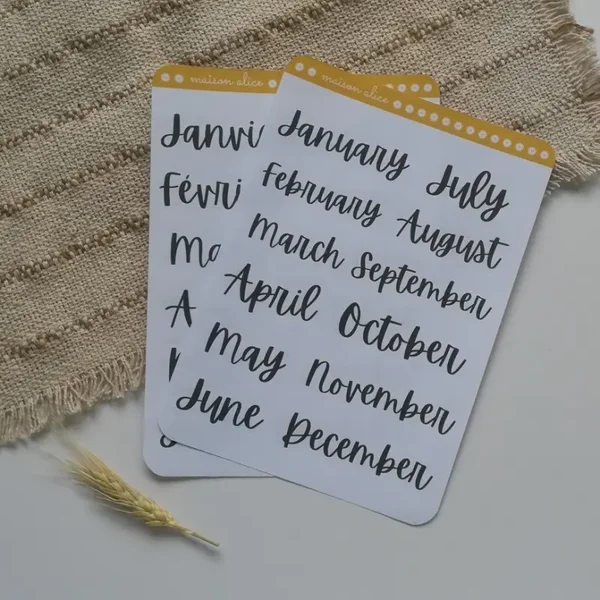 maison alice
Janvi
Févri
Ma
A
maison alice
January July
February August
March September
April October
May November
June December